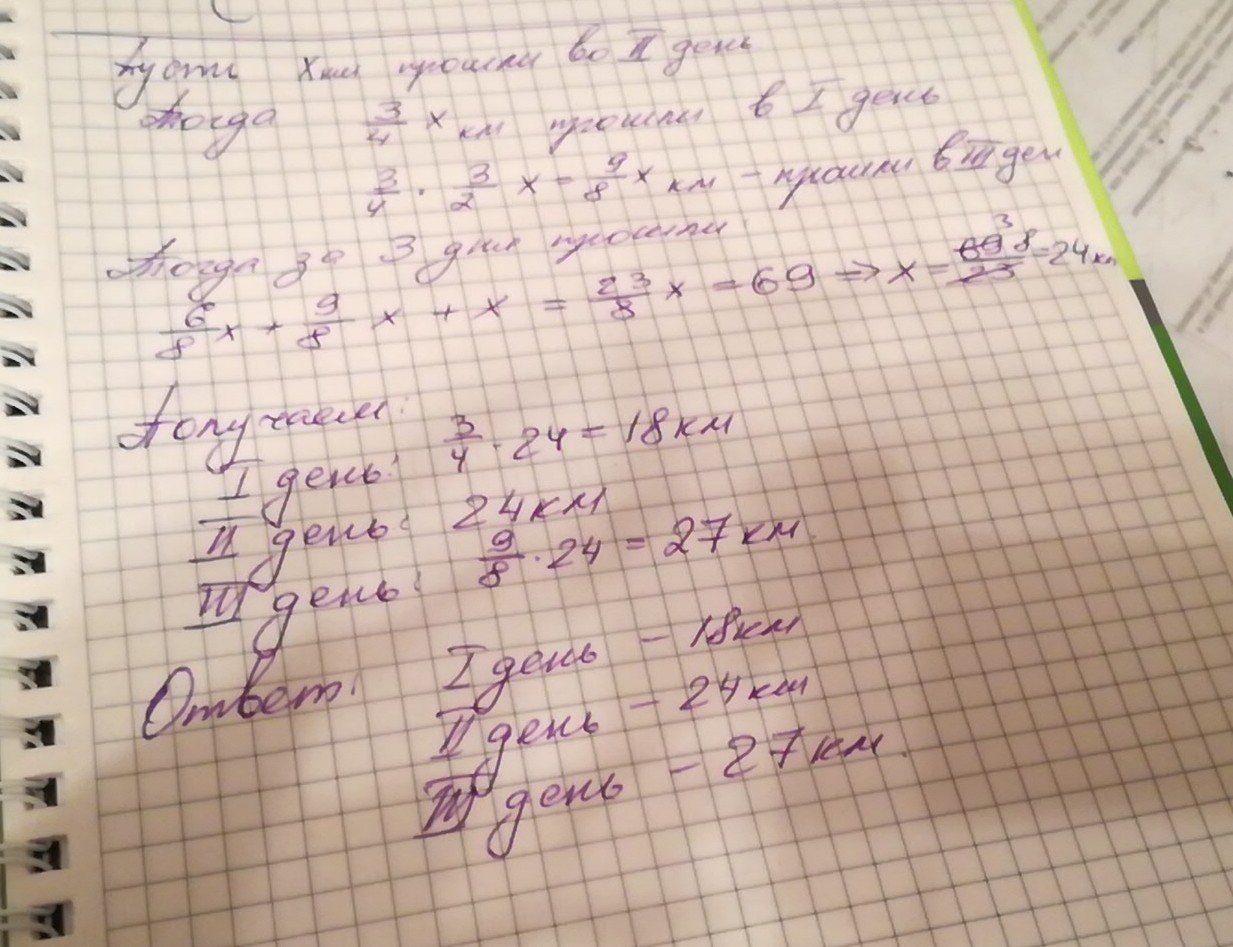 Пусть x км прошли во II день
Тогда 3/4 x км прошли в I день
3/4 · 3/2 x = 9/8 x км – прошли в III ден
Тогда за 3 дня прошли:
6/8 x + 9/8 x + x = 23/8 x = 69 => x = 69 3 8/23 = 24 км
Получаем:
I день: 3/4 · 24 = 18 км
II день: 24 км
III день: 9/8 · 24 = 27 км.
Ответ: I день – 18 км
II день – 24 км
III день – 27 км.